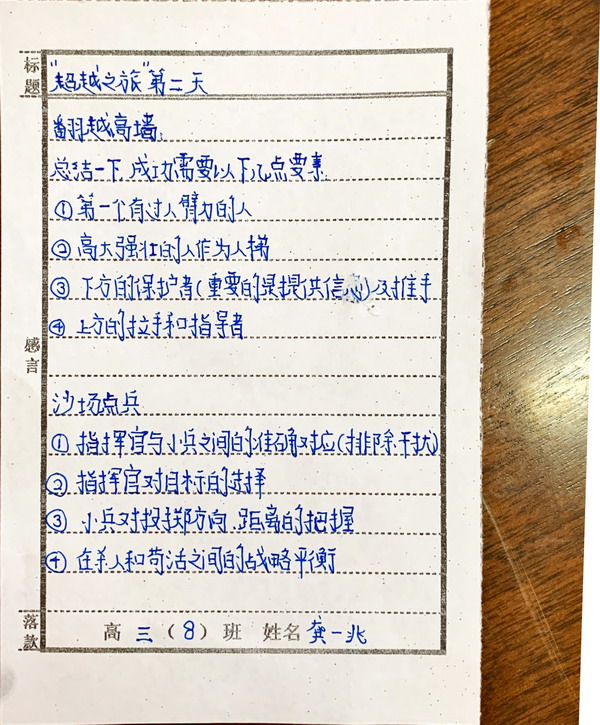 标题
"超越之旅"第二天
翻越高墙:
总结一下,成功需要以下几点要素:
①第一个有过人臂力的人
②高大强壮的人作为人梯
③下方的保护者(重要的是提供信心)及推手
④上方的拉手和指导者
感言
沙场点兵
①指挥官与小兵之间的准确对应(排除干扰)
②指挥官对目标的选择
③小兵对投掷方向、距离的把握
④在杀人和苟活之间的战略平衡
落款
高三(8)班 姓名龚一兆